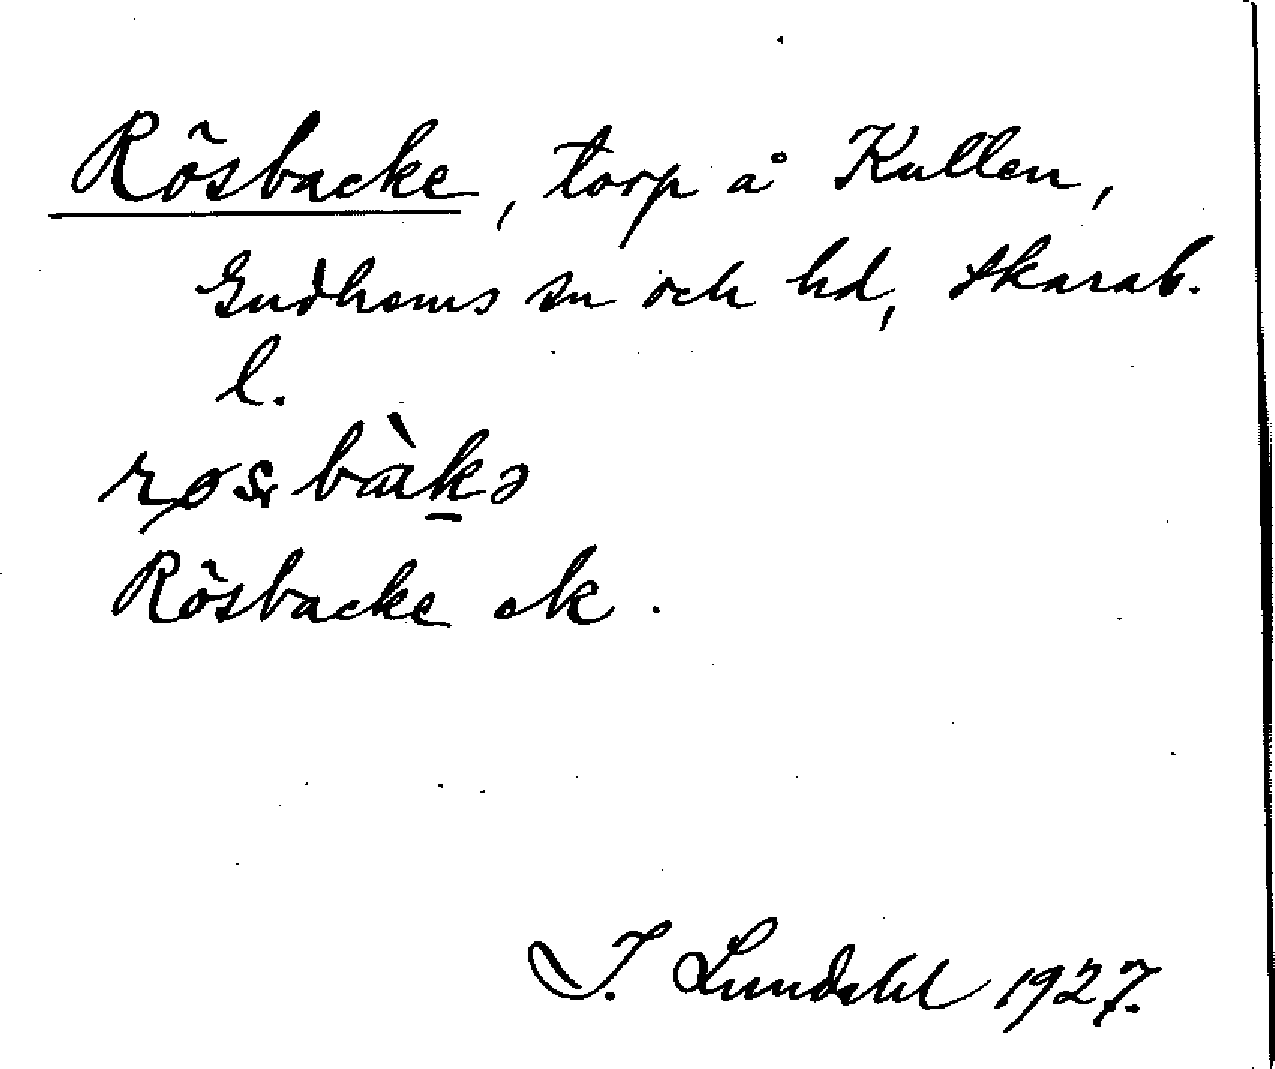 Rösbacke, torp å Kullen,
Gudhems sn och hd, Skarab.
l.
røsbàkə
Rösbacke ek.
I. Lundahl 1927.